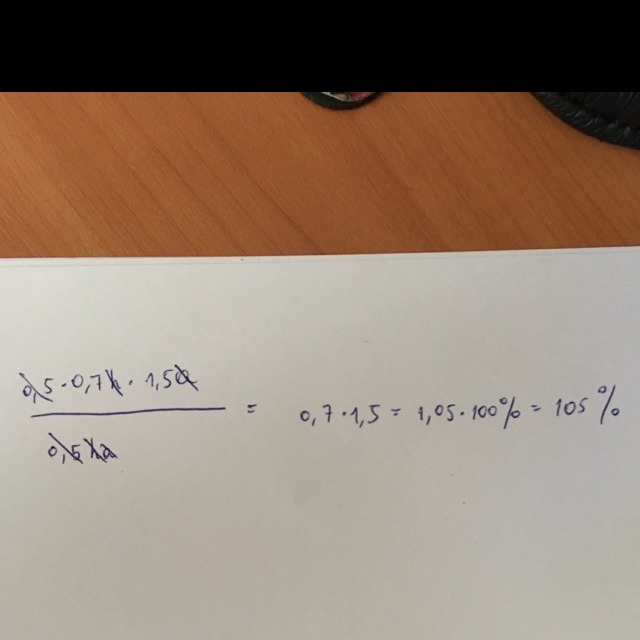 0,5 · 0,7h · 1,5a
0,5ha
= 0,7 · 1,5 = 1,05 · 100% = 105%